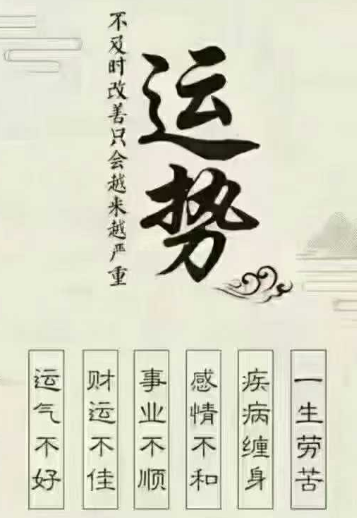 运势
不及时改善只会越来越严重
一生劳苦
疾病缠身
感情不和
事业不顺
财运不佳
运气不好